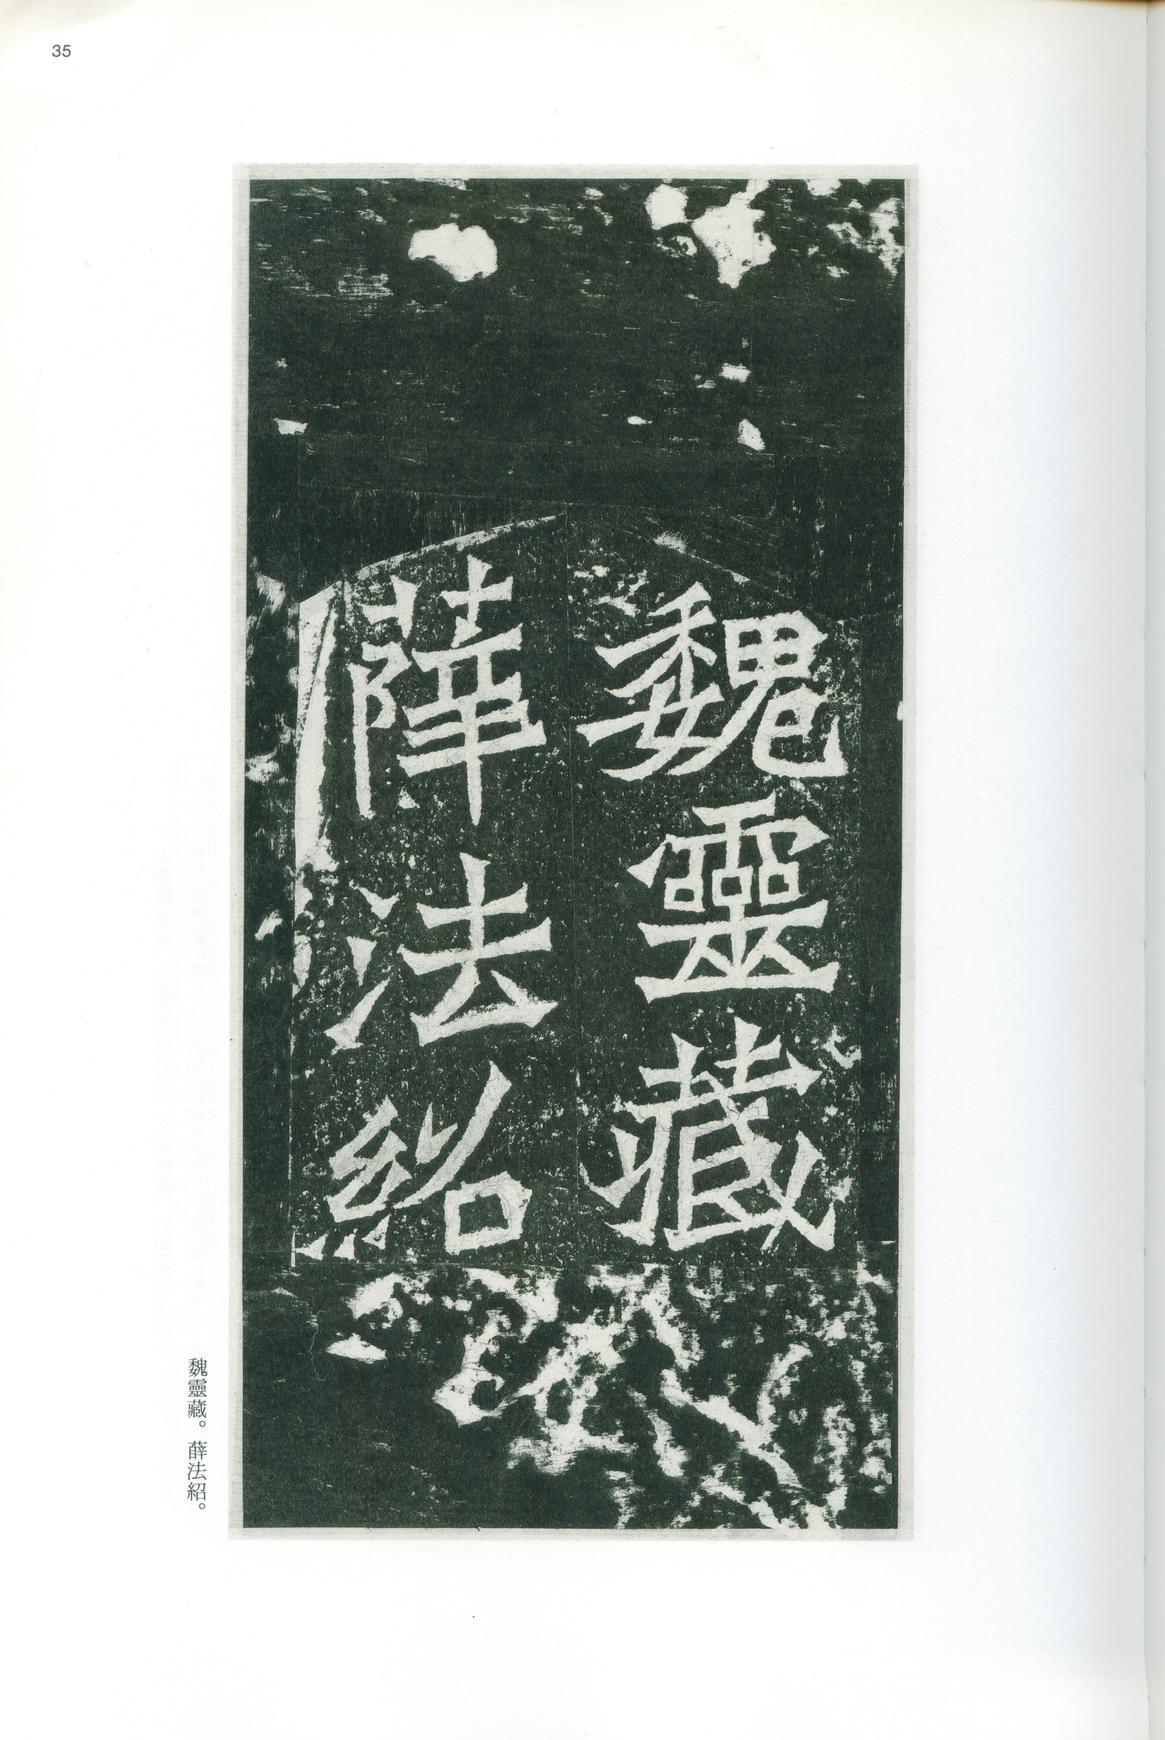 35
魏靈藏
薛法紹
魏靈藏。薛法紹。